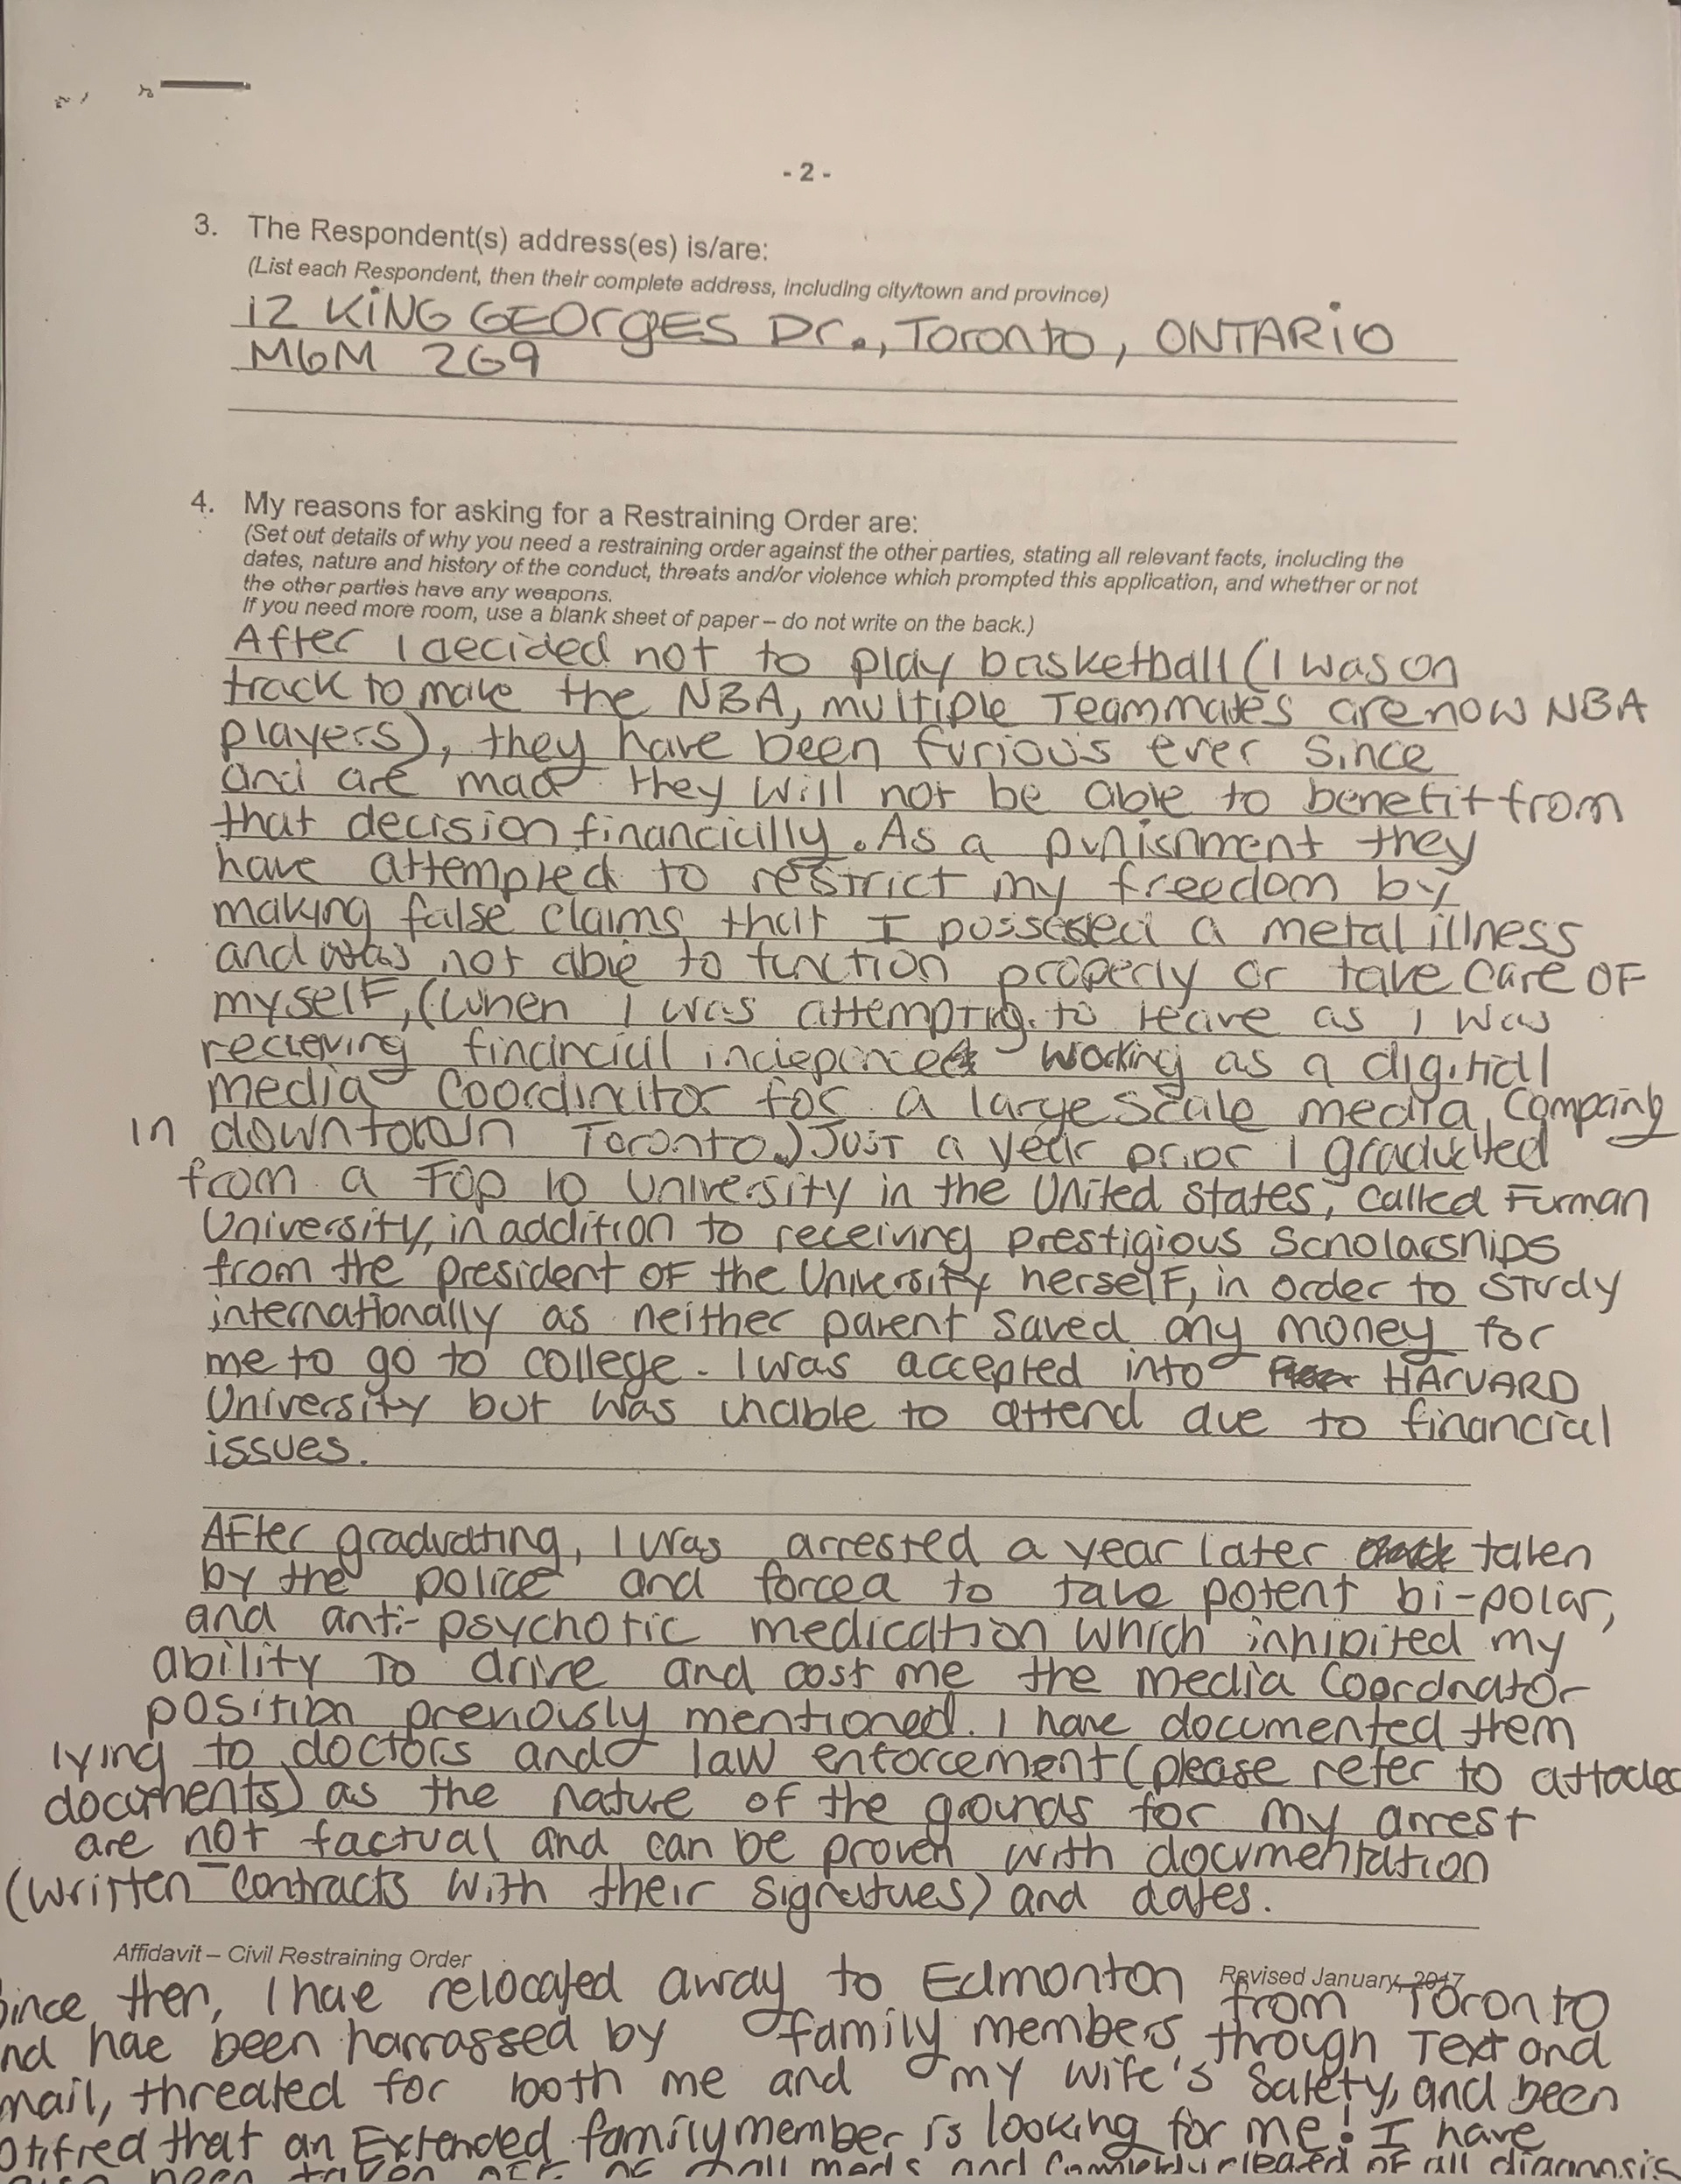 - 2 -
3. The Respondent(s) address(es) is/are:
(List each Respondent, then their complete address, including city/town and province)
12 KiNG GEOrgES Dr., Toronto, ONTARiO
M6M 2G9
4. My reasons for asking for a Restraining Order are:
(Set out details of why you need a restraining order against the other parties, stating all relevant facts, including the
dates, nature and history of the conduct, threats and/or violence which prompted this application, and whether or not
the other parties have any weapons.
If you need more room, use a blank sheet of paper – do not write on the back.)
After I decided not to play basketball (I was on
track to make the NBA, multiple Teammates are now NBA
players), they have been furious ever since
and are mad they will not be able to benefit from
that decision financially. As a punishment they
have attempted to restrict my freedom by
making false claims that I possessed a metal illness
and was not able to function properly or take care OF
myselF, (when I was attempting to leave as I was
recieving financial working as a digital
media Coordinator for a large scale media Company
in downtown Toronto.) Just a year prior I graduated
from a Top 10 University in the United States, called Furman
University, in addition to receiving prestigious scholarships
from the president OF the University herselF, in order to study
internationally as neither parent saved any money for
me to go to college. I was accepted into HArVARD
University but was unable to attend due to financial
issues.
AFter graduating, I was arrested a year later taken
by the police and forced to take potent bi-polar,
and anti-psychotic medication which inhibited my
ability to drive and cost me the media Coordnator
position previously mentioned. I have documented them
lying to doctors and law enforcement (please refer to
documents) as the nature of the grounds for my arrest
are not factual and can be proven with documentation
(written contracts with their signatues) and dates.
Affidavit – Civil Restraining Order
Revised January, 2017
since then, I have relocated away to Edmonton from Toronto
nd hae been harrassed by family members through Text and
mail, threated for both me and my wife's safety, and been
otifred that an Extended family member is looking for me! I have
been taken off of all meds and cleared of all diagnosis